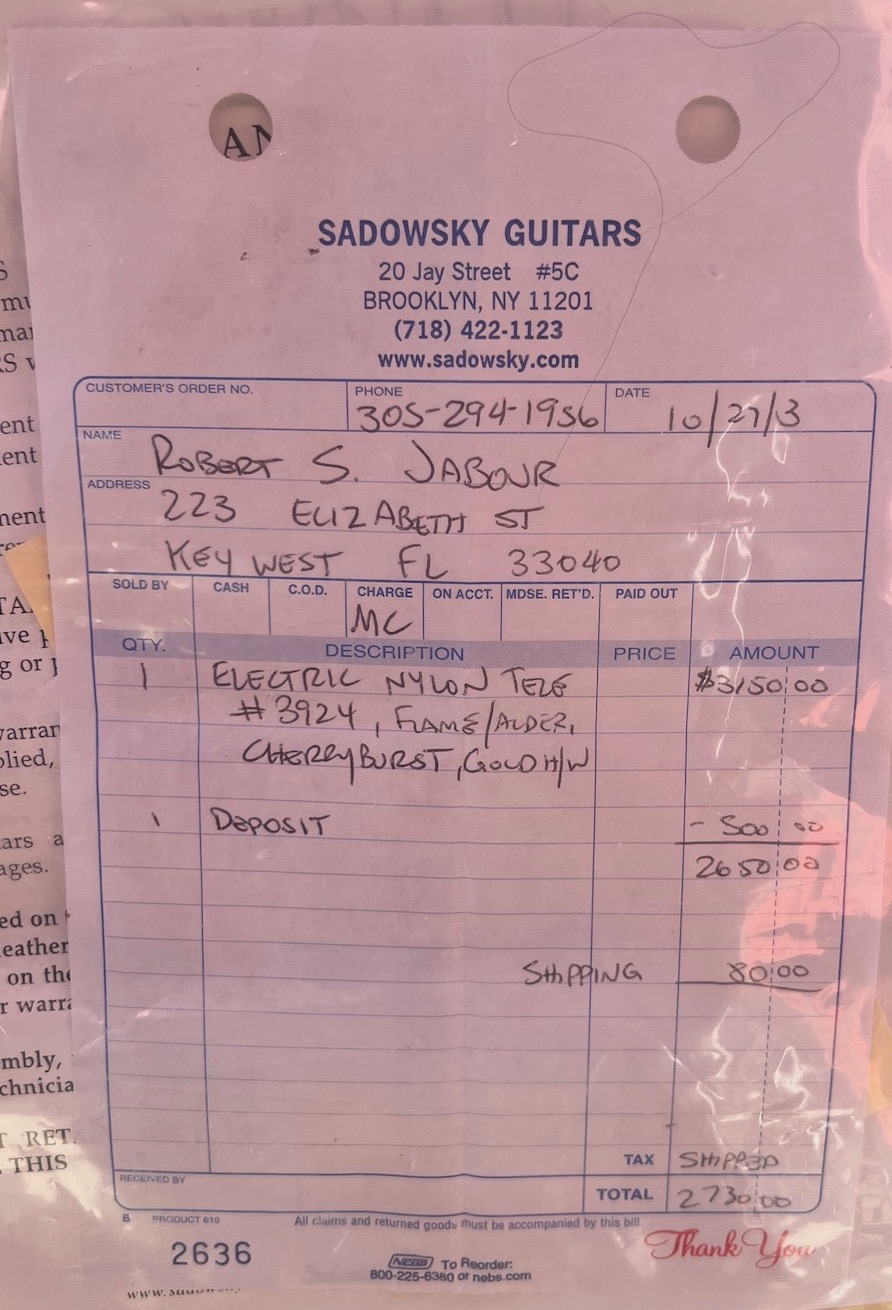 AN
SADOWSKY GUITARS
20 Jay Street #5C
BROOKLYN, NY 11201
(718) 422-1123
www.sadowsky.com
CUSTOMER'S ORDER NO. PHONE 305-294-1956 DATE 10/27/3
NAME ROBERT S. JABOUR
ADDRESS 223 ELIZABETH ST
KEY WEST FL 33040
SOLD BY CASH C.O.D. CHARGE ON ACCT. MDSE. RET'D. PAID OUT
MC
QTY. DESCRIPTION PRICE AMOUNT
1 ELECTRIC NYLON TELE $3150 00
#3924, FLAME/ALDER,
CHERRYBURST, GOLD H/W
1 DEPOSIT - 500 00
2650 00
SHIPPING 80 00
TAX SHIPPED
RECEIVED BY
TOTAL 2730 00
B PRODUCT 610 All claims and returned goods must be accompanied by this bill.
Thank You
2636
NEBS To Reorder:
800-225-6380 or nebs.com